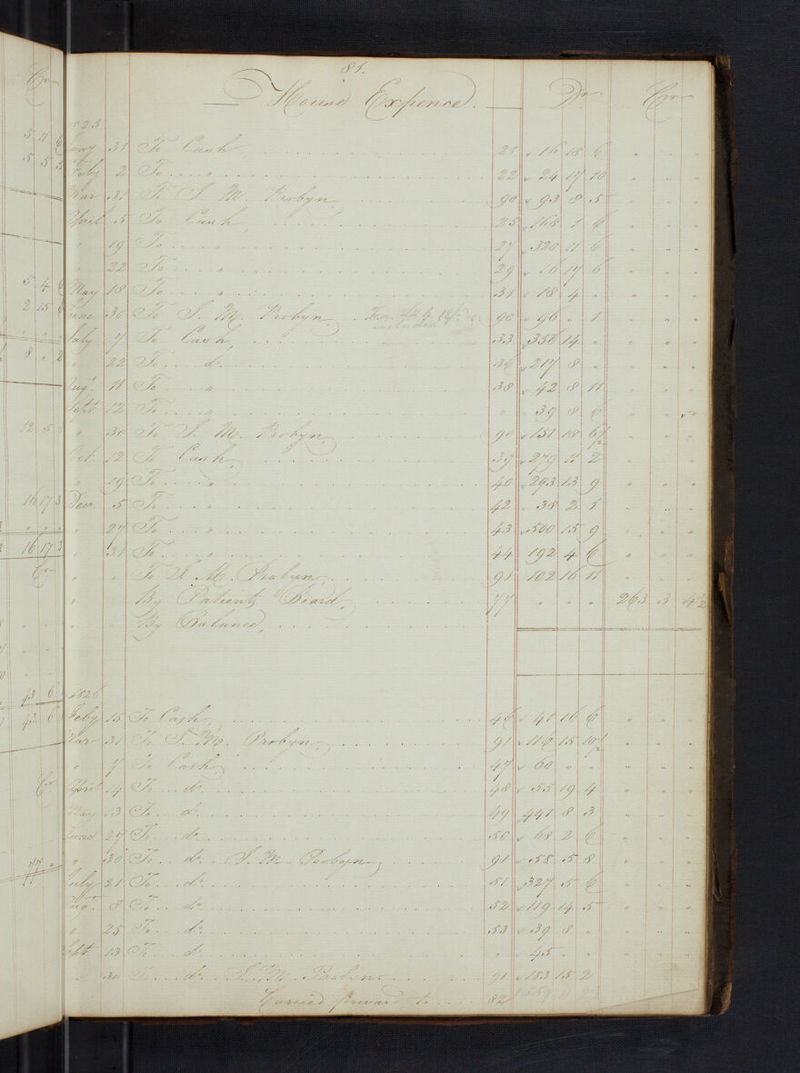 81.
House Expence. Dr Cr
1825
Jany 31 To Cash 21 16 18 6
Feby 2 To " 22 24 17 10
Mar 31 To S. M. Probyn 90 93 8 5
April 5 To Cash 25 168 1 6
" 19 To " 27 320 11 6
" 22 To " 29 16 17 6
May 18 To " 31 18 4 -
June 30 To S. M. Probyn included 90 96 - 1
July 7 To Cash 33 356 14 -
" 22 To do 36 217 8 -
Augt 11 To " 38 42 8 11
Sept 12 To " " 39 8
" 30 To S. M. Probyn 90 151 18 6½
Oct 12 To Cash 39 279 11 2
" 19 To " 40 293 13 9
Decr 5 To " 42 38 2 5
" 27 To " 43 500 15 9
" 31 To " 44 192 4 6
" " To S. M. Probyn 91 102 16 11
" By Patients Board 77 263 3 4½
By Balance
1826
Feby 15 To Cash 46 41 16 6
Mar 31 To S. M. Probyn 91 116 15 10½
" 7 To Cash 47 60 - -
April 14 To do 48 55 19 4
May 13 To do 49 441 8 3
June 27 To do 50 68 2 6
" 30 To do S. M. Probyn 91 58 5 8
July 21 To do 51 327 5 6
Augt 8 To do 52 119 14 5
" 25 To do 53 39 8 -
Sept 13 To do " 45 - -
" 30 To do S. M. Probyn 91 183 15 2
Carried forward to 82